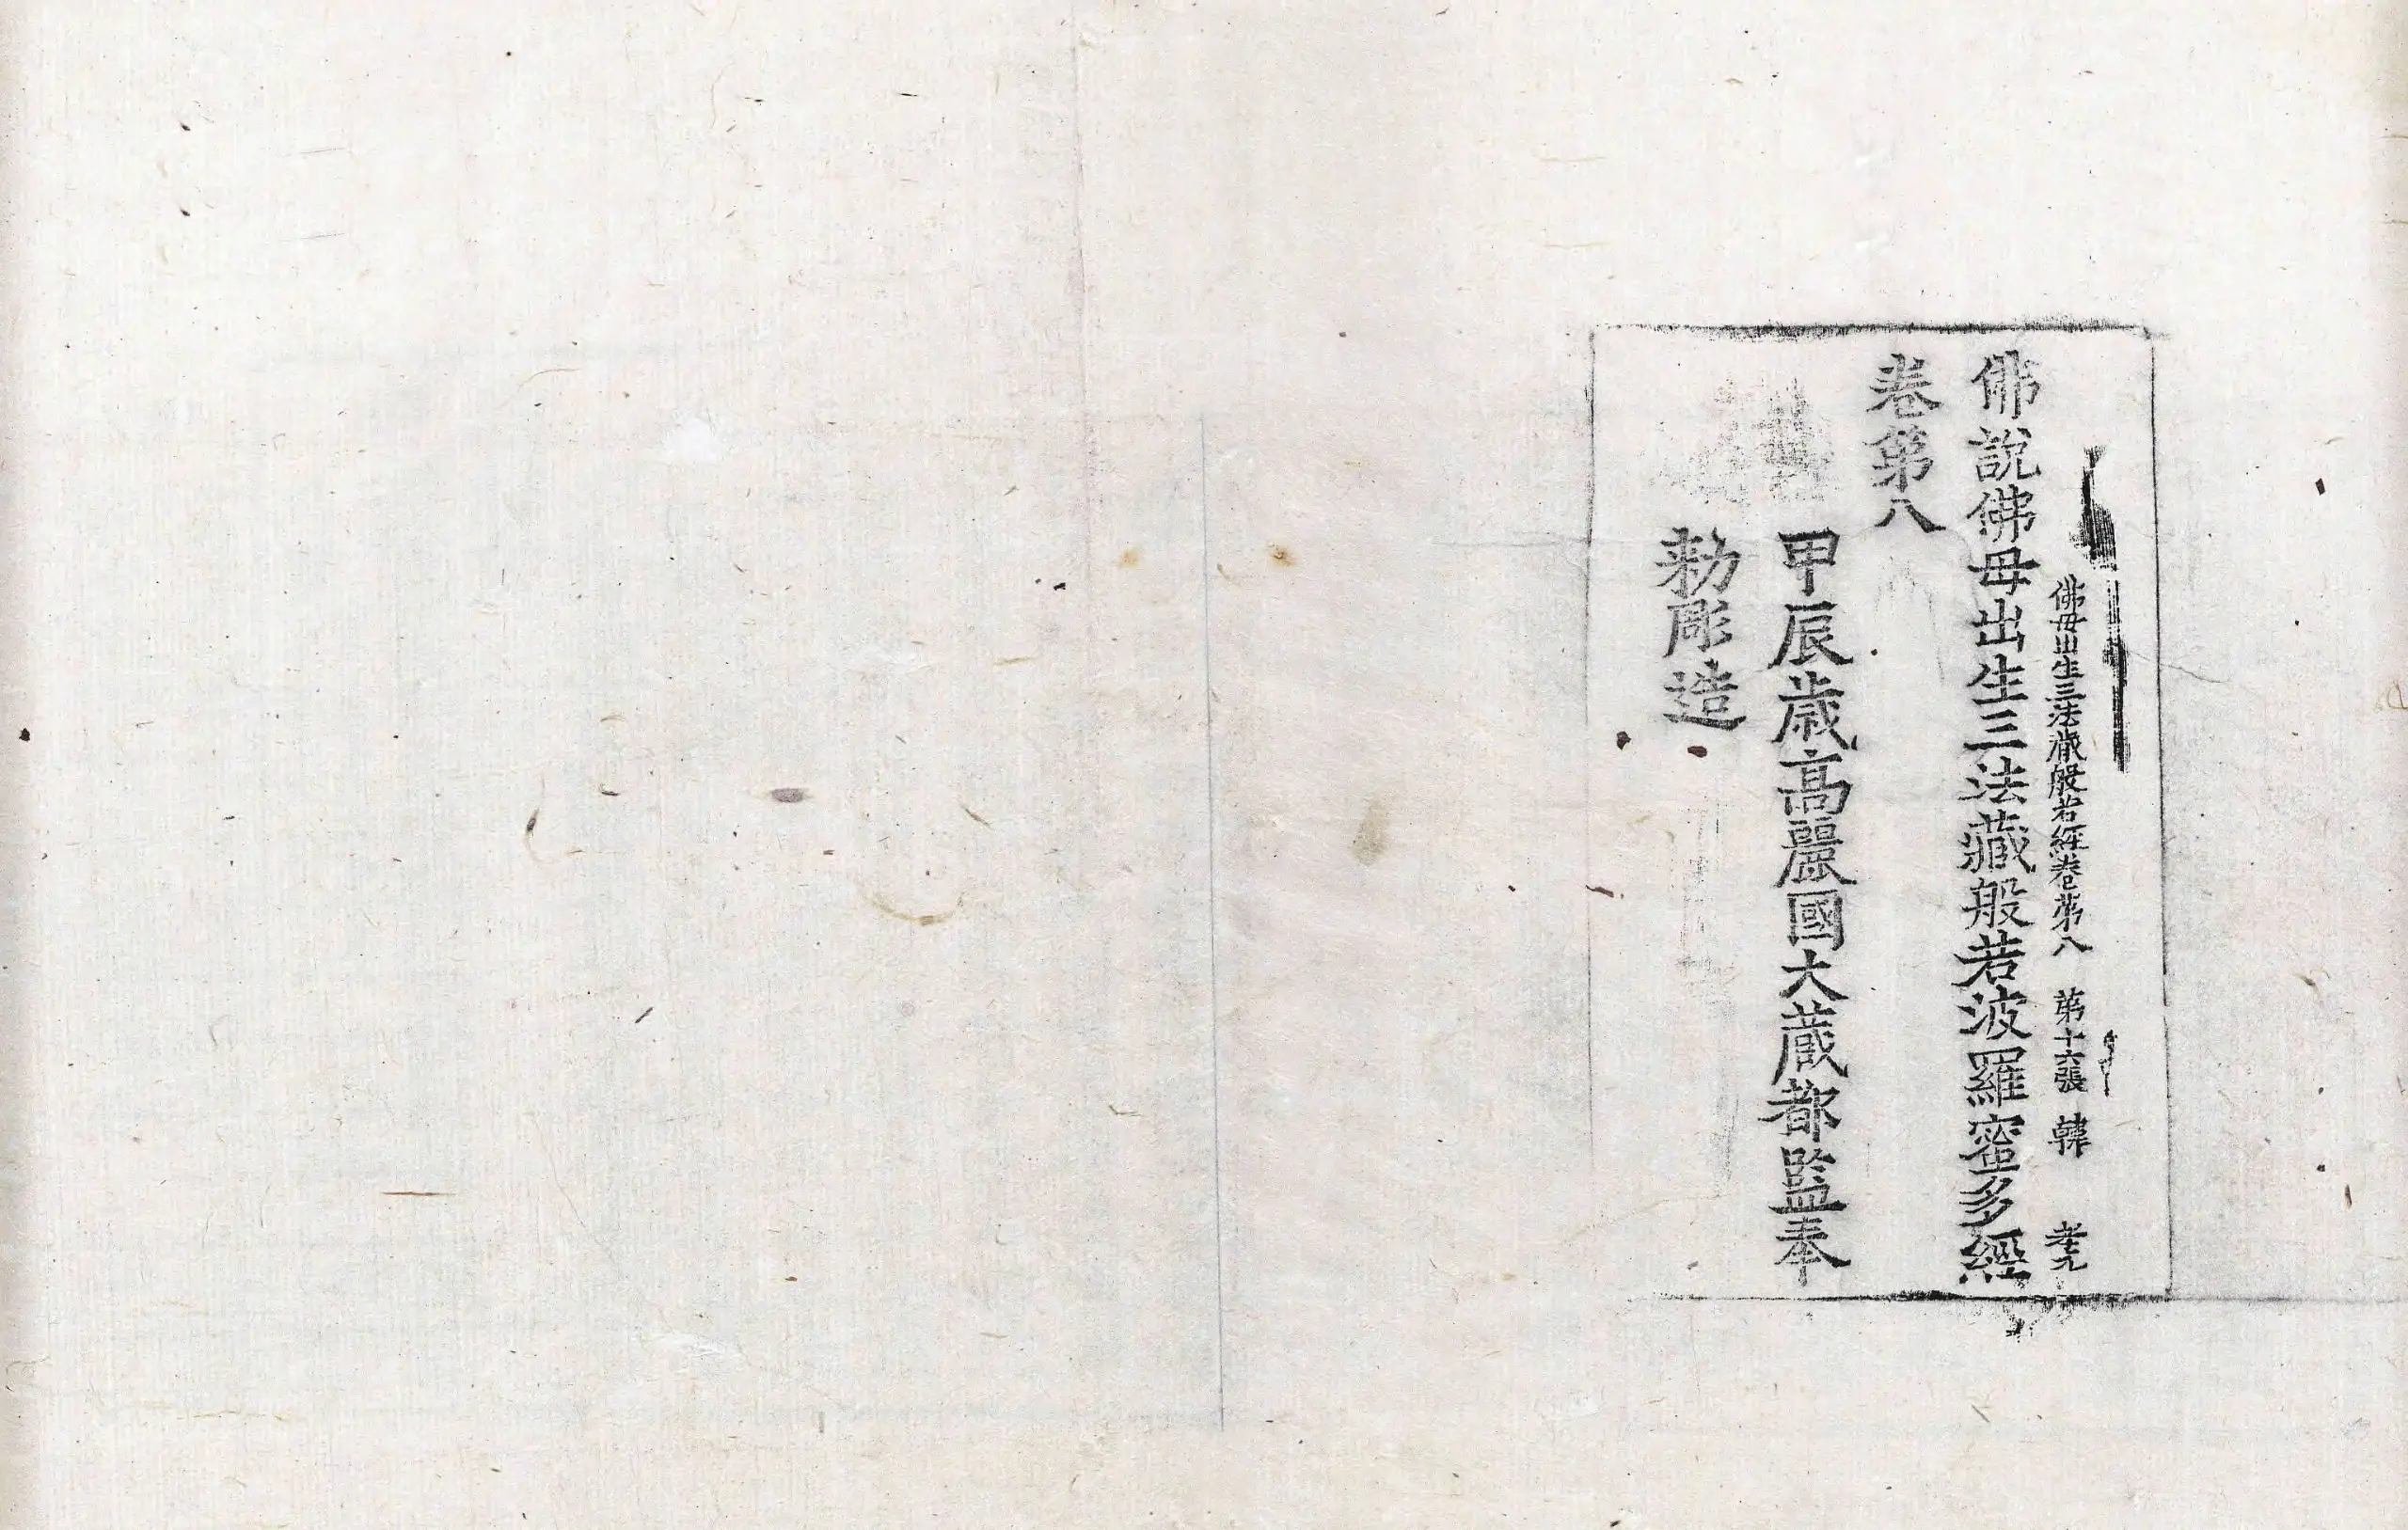 佛母出生三法藏般若經卷第八 第十六張 韓 孝元
佛說佛母出生三法藏般若波羅蜜多經
卷第八
甲辰歲高麗國大藏都監奉
勅彫造